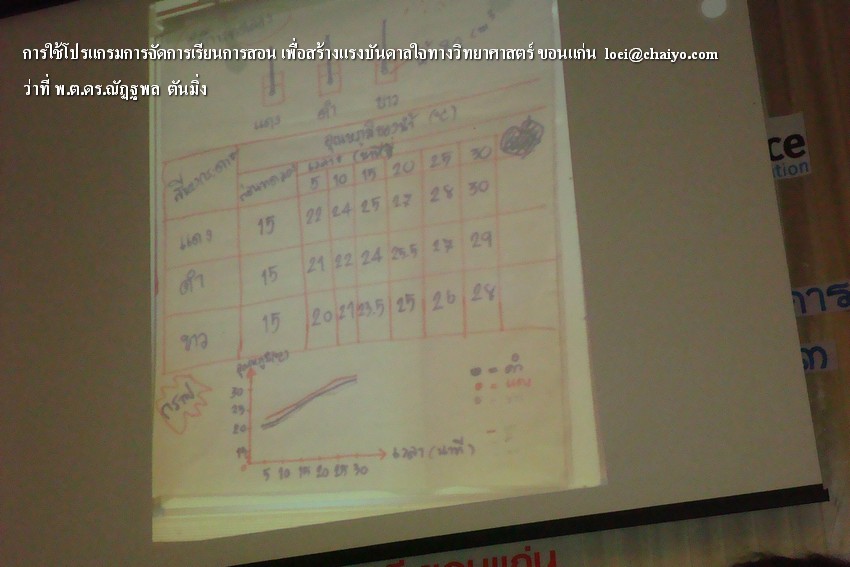 การใช้โปรแกรมการจัดการเรียนการสอน เพื่อสร้างแรงบันดาลใจทางวิทยาศาสตร์ ขอนแก่น loei@chaiyo.com
ว่าที่ พ.ต.ดร.ณัฏฐพล ตันมิ่ง
แดง ดำ ขาว
อุณหภูมิของน้ำ (°C)
สีของกระดาษ ก่อนทดลอง เวลา (นาที)
5 10 15 20 25 30
แดง 15 22 24 25 27 28 30
ดำ 15 21 22 24 25.5 27 29
ขาว 15 20 21 23.5 25 26 28
กราฟ
อุณหภูมิ(°C)
30
25
20
15
0
5 10 15 20 25 30
เวลา (นาที)
= ดำ
= แดง
ce
tion
การ
ขอนแก่น